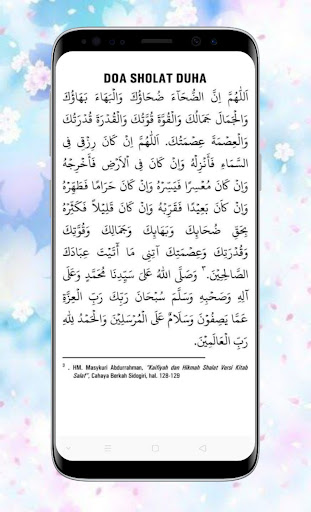 DOA SHOLAT DUHA
اَللّٰهُمَّ اِنَّ الضُّحَآءَ ضُحَاؤُكَ وَالْبَهَاءَ بَهَاؤُكَ
وَالْجَمَالَ جَمَالُكَ وَالْقُوَّةَ قُوَّتُكَ وَالْقُدْرَةَ قُدْرَتُكَ
وَالْعِصْمَةَ عِصْمَتُكَ. اَللّٰهُمَّ اِنْ كَانَ رِزْقِى فِى
السَّمَاءِ فَأَنْزِلْهُ وَاِنْ كَانَ فِى اْلاَرْضِ فَأَخْرِجْهُ
وَاِنْ كَانَ مُعْسِرًا فَيَسِّرْهُ وَاِنْ كَانَ حَرَامًا فَطَهِّرْهُ
وَاِنْ كاَنَ بَعِيْدًا فَقَرِّبْهُ وَاِنْ كَانَ قَلِيْلاً فَكَثِّرْهُ
بِحَقِّ ضُحَايِكَ وَبَهَايِكَ وَجَمَالِكَ وَقُوَّتِكَ
وَقُدْرَتِكَ وَعِصْمَتِكَ آتِنِى مَا أَتَيْتَ عِبَادَكَ
الصَّالِحِيْنَ.³ وَصَلَّى اللهُ عَلَى سَيِّدِنَا مُحَمَّدٍ وَعَلَى
آلِهِ وَصَحْبِهِ وَسَلَّمَ سُبْحَانَ رَبِّكَ رَبِّ الْعِزَّةِ
عَمَّا يَصِفُوْنَ وَسَلَامٌ عَلَى الْمُرْسَلِيْنَ وَالْحَمْدُ لِلهِ
رَبِّ الْعَالَمِيْنَ.
³ . HM. Masykuri Abdurrahman, "Kaifiyah dan Hikmah Shalat Versi Kitab
Salaf", Cahaya Berkah Sidogiri, hal. 128-129